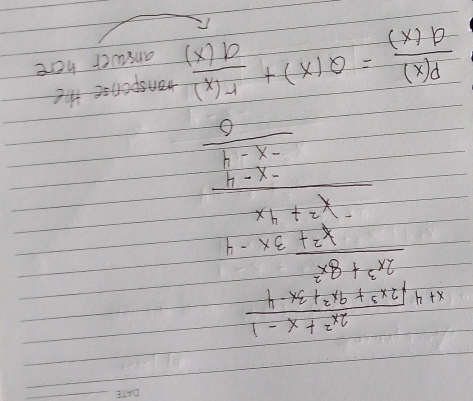 DATE
2x² + x - 1
x + 4 √2x³ + 9x² + 3x - 4
2x³ + 8x²
x² + 3x - 4
- x² + 4x
-x - 4
-x - 4
0
P(x)/d(x) = Q(x) + r(x)/d(x) transpose the answer here